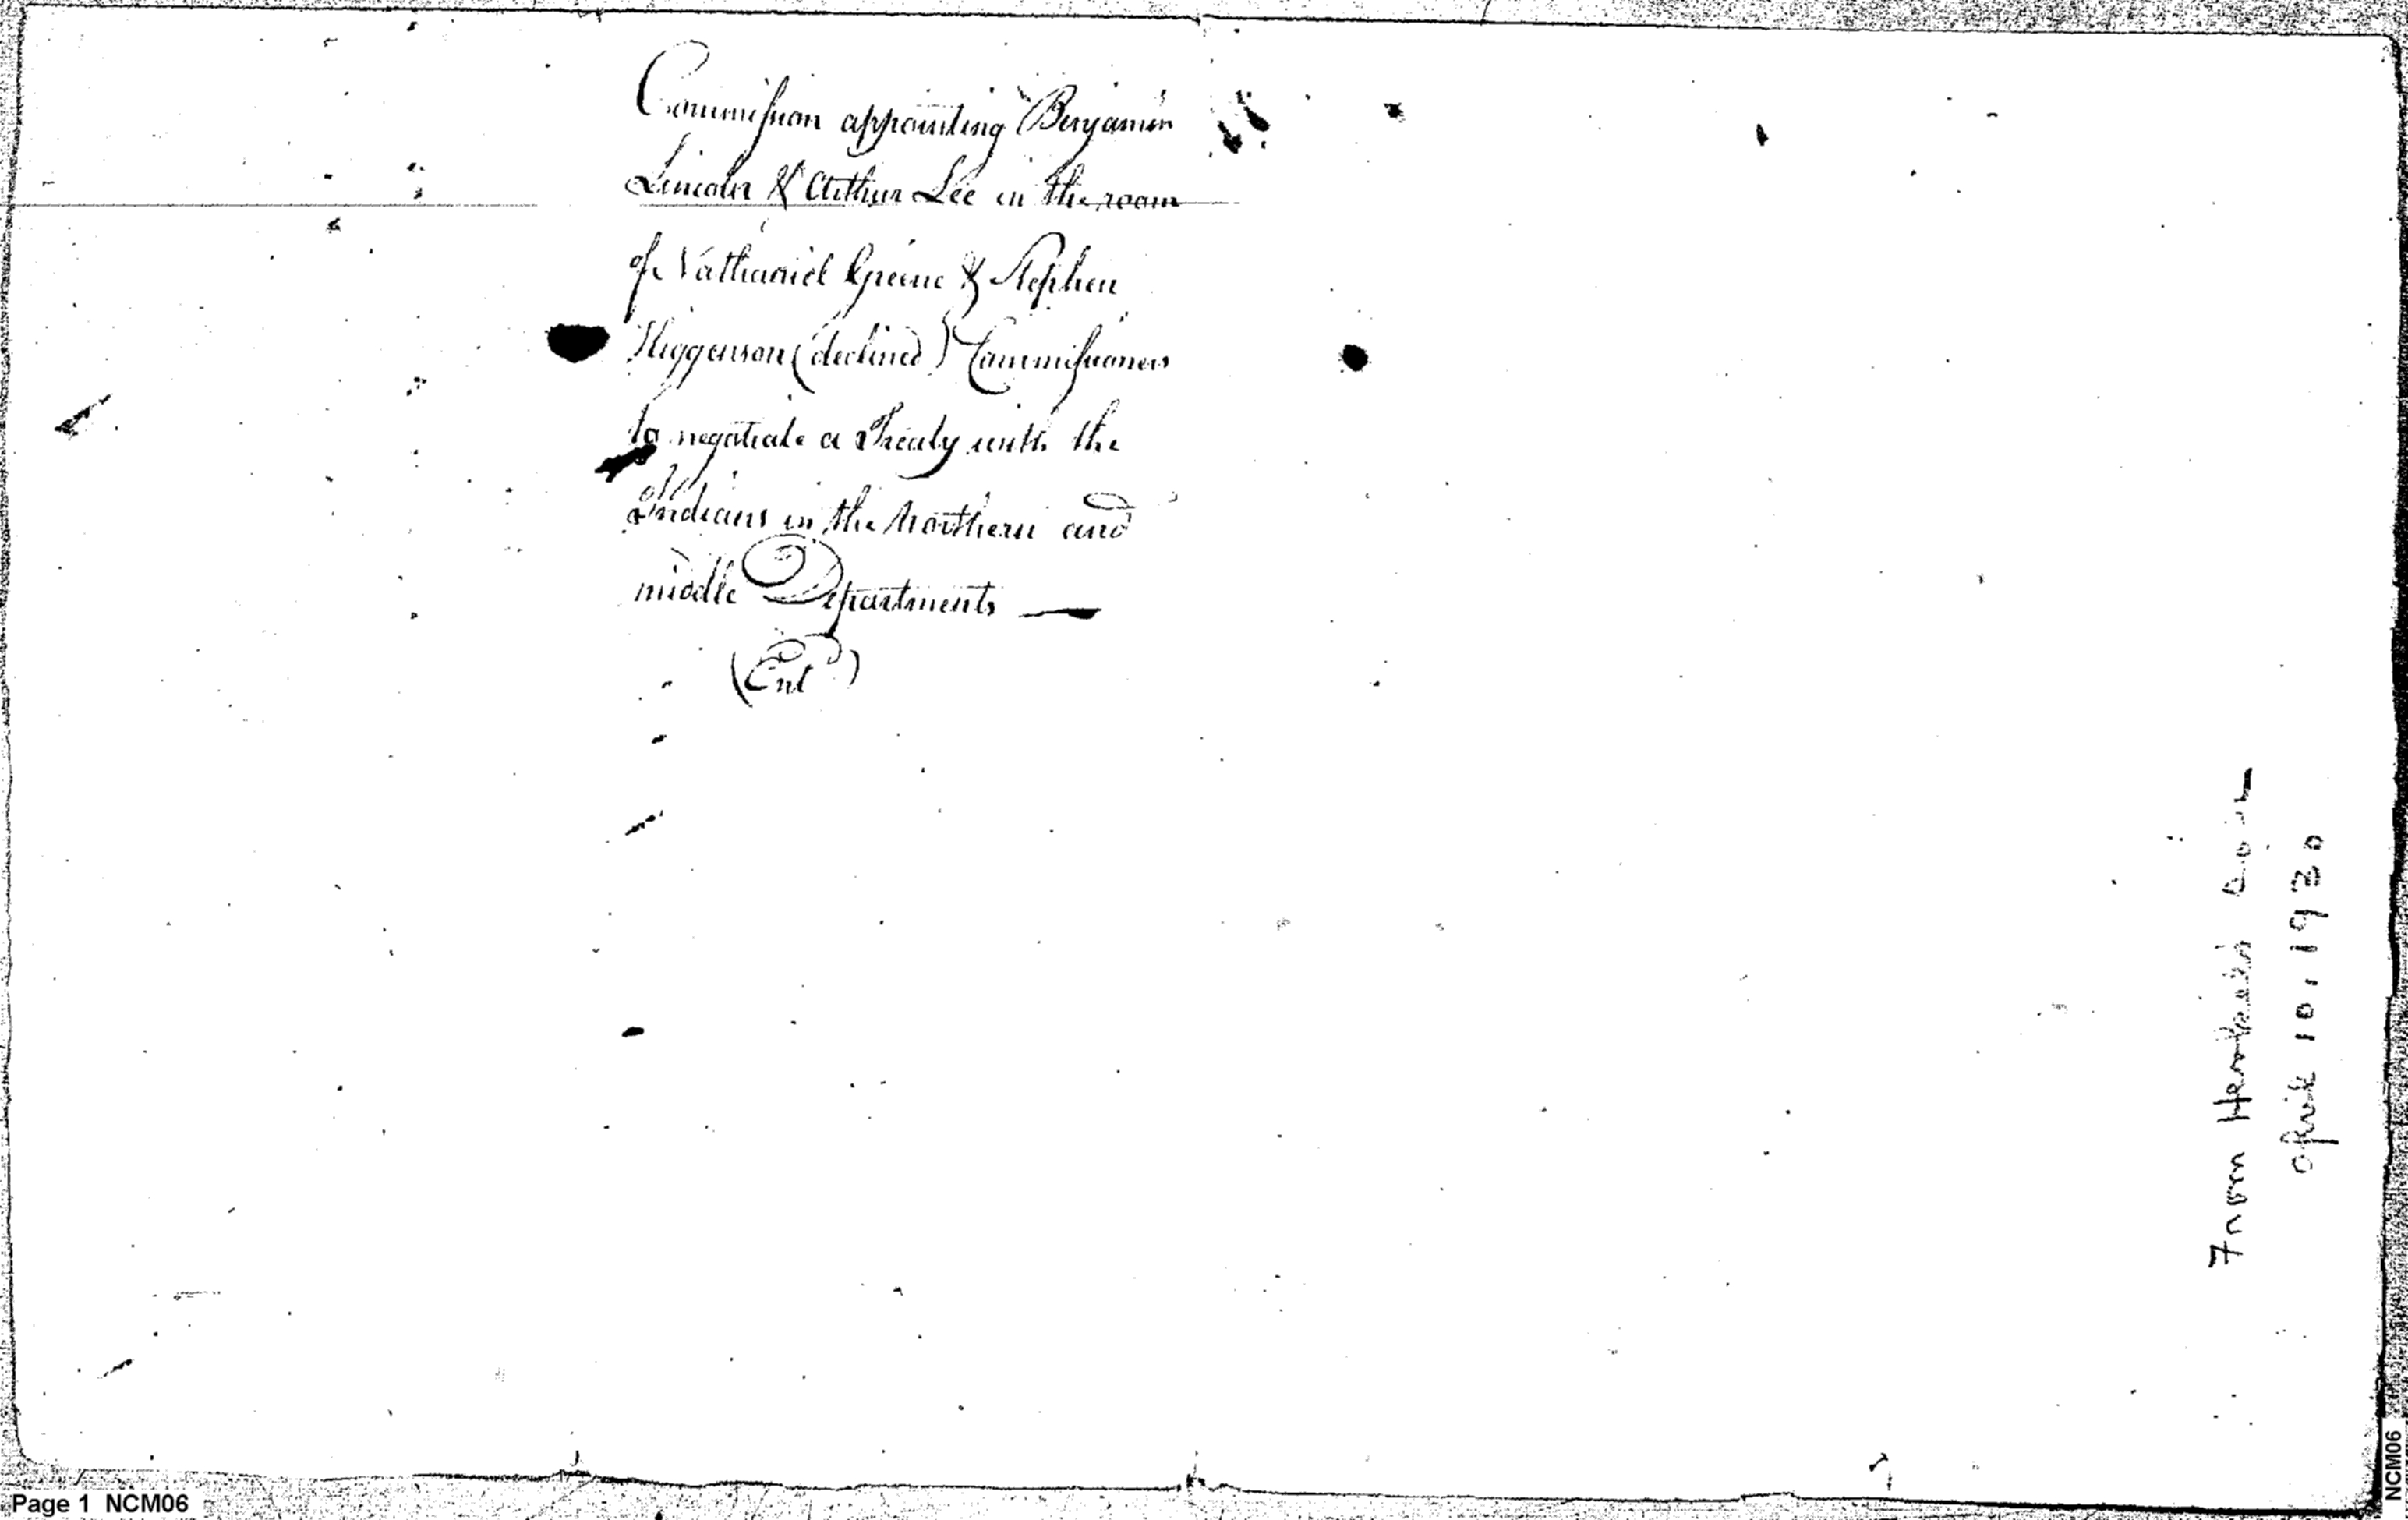 Commission appointing Benjamin
Lincoln & Arthur Lee in the room
of Nathaniel Greene & Stephen
Higgenson (declined) Commissioners
to negotiate a Treaty with the
Indians in the Northern and
middle Departments —
(Entd)
From
April 10, 1930
Page 1 NCM06
NCM06